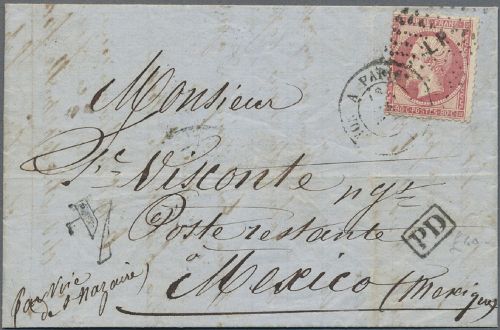 EMPIRE FRANC
80C POSTES 80C
A PARIS
Monsieur
Visconte ngt
Poste restante
à Mexico (Mexique)
PD
Par Voie
de St Nazaire